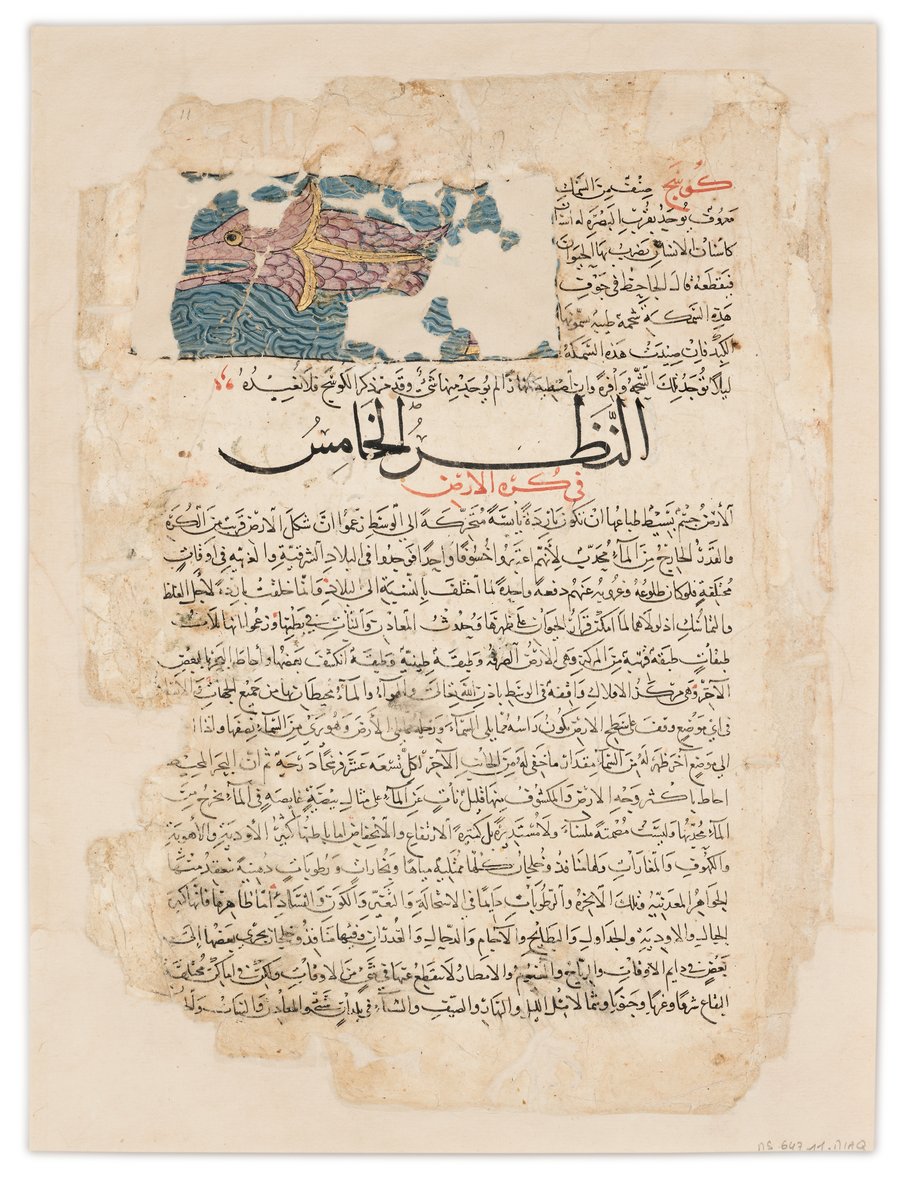 11
كوسج صنف من السمك
معروف يوجد بقرب البصرة له اسنان
كاسنان الانسان يضرب بها الحيوان
فيقطعه قال الجاحظ في جوف
هذه السمكة شحمة طيبة يسمونها
الكبد فان صيدت هذه السمكة
ليلا توجد تلك الشحمة وافرة وان اصطيدت نهارا لم يوجد منها شيء وقد مر ذكر الكوسج فلا نعيده
النظر الخامس
في كرة الارض
الارض جسم بسيط طباعها ان تكون باردة يابسة متحركة الى الوسط زعموا ان شكل الارض قريب من الكرة
والقدر الخارج من الماء محدب لانهم اعتبروا خسوفا واحدا فوجدوا في البلاد الشرقية والغربية في اوقات
مختلفة فلو كان طلوعه وغروبه عنهم دفعة واحدة لما اختلف بالنسبة الى البلاد وانما خلقت باردة لاجل الغلظ
والتماسك اذ لولاهما لما امكن قرار الحيوان على ظهرها وحدوث المعادن والنبات في بطنها وزعموا انها ثلاث
طبقات طبقة قريبة من المركز وهي الارض الصرفة وطبقة طينية وطبقة انكشف بعضها واحاط البحر بالبعض
الآخر وهي مركز الافلاك واقفة في الوسط باذن الله تعالى والهواء والماء محيطان بها من جميع الجهات
في اي موضع وقف على سطح الارض يكون راسه مما يلي السماء ورجله مما يلي الارض وهو يرى من السماء نصفها واذا
الى موضع آخر ظهر له من السماء مقدار ما خفي له من الجانب الآخر لكل تسعة عشر فرسخا درجة ثم ان البحر المحيط
احاط باكثر وجه الارض والمكشوف منها قليل ناتئ عن الماء على مثال بيضة غايصة في الماء يخرج من
الماء محدبها وليست مصمتة ملساء ولا مستديرة بل كثيرة الارتفاع والانخفاض اما باطنها كثير الاودية والاهوية
والكهوف والمغارات ولها منافذ وخلجان كلها ممتلية مياها وبخارات ورطوبات دهنية ينعقد منها
الجواهر المعدنية وتلك الابخرة والرطوبات دايما في الاستحالة والتغير والكون والفساد اما ظاهرها فانها كثير
الجبال والاودية والجداول والبطايح والآجام والدحال والغدران وفيها منافذ وخلجان يجري بعضها الى
بعض في دايم الاوقات والرياح والغيوم والامطار لا ينقطع عنها في شيء من الاوقات ولكن في اماكن مختلفة
البقاع شرقا وغربا وجنوبا وشمالا مثل الليل والنهار والصيف والشتاء في بلدان شتى والمعادن والنبات
MS.647.11.MIAQ